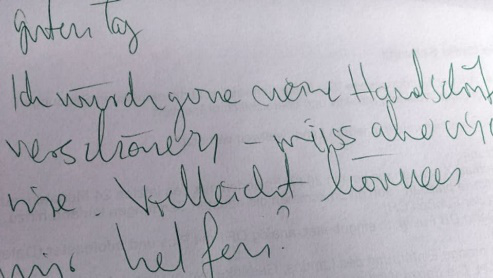 guten Tag
Ich würde gerne meine Handschrif
verschönern - weiss aber nich
wie. Vielleicht können
mir helfen?